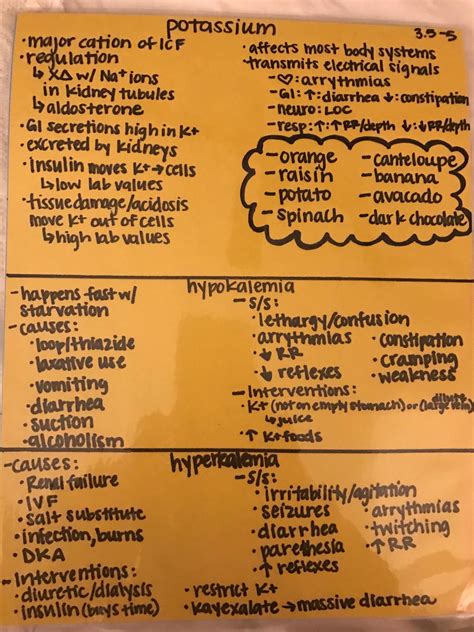 potassium
3.5-5
·major cation of ICF
·regulation
↳ X∆ w/ Na⁺ ions
in kidney tubules
↳ aldosterone
·GI secretions high in K+
·excreted by kidneys
·Insulin moves K+→cells
↳low lab values
·tissue damage/acidosis
move K+ out of cells
↳high lab values
·affects most body systems
·transmits electrical signals
-♡: arrythmias
-GI: ↑: diarrhea ↓: constipation
-neuro: LOC
-resp: ↑: ↑RR/depth ↓: ↓RR/depth
-orange
-raisin
-potato
-spinach
-canteloupe
-banana
-avacado
-dark chocolate
hypokalemia
-happens fast w/
starvation
-causes:
·loop/thiazide
·laxative use
·vomiting
·diarrhea
·suction
·alcoholism
-S/S:
·lethargy/confusion
·arrythmias
·↓ RR
·↓ reflexes
·constipation
·cramping
·weakness
-Interventions:
·K+ (not on empty stomach) or (large vein)
dilute
↳ juice
·↑ K+ foods
hyperkalemia
-causes:
·Renal failure
·IVF
·salt substitute
·infection, burns
·DKA
-S/S:
·irritability/agitation
·seizures
·diarrhea
·paresthesia
·↑ reflexes
·arrythmias
·twitching
·↑RR
-Interventions:
·diuretic/dialysis
·insulin (buys time)
·restrict K+
·kayexalate → massive diarrhea